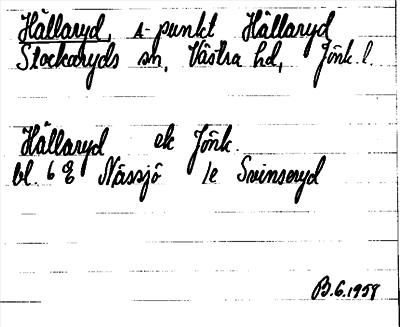 Hällaryd, s-punkt Hällaryd
Stockaryds sn, Västra hd, Jönk. l.
Hällaryd ek Jönk.
bl. 6 g Nässjö 1e Svinseryd
B.6.1958